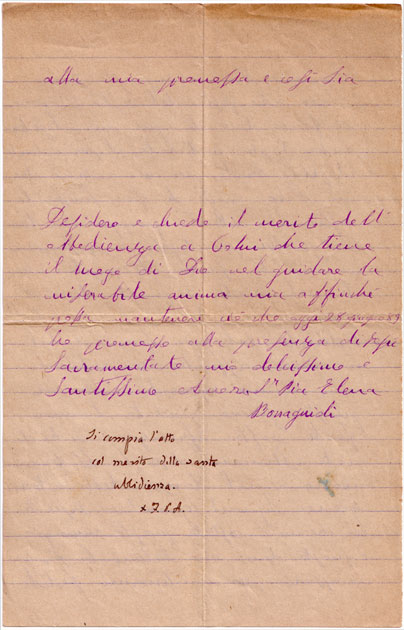 alla mia promessa e così sia
Desidero e chiedo il merito dell'
obbedienza a Colui che tiene
il luogo di Dio nel guidare la
miserabile anima mia affinché
possa mantenere ciò che oggi 28 giugno
ho promesso alla presenza di Gesù
Sacramentato mio dolcissimo e
Santissimo Amore Sr Pia Elena
Bonaguidi
Si compia l'atto
col merito della santa
ubbidienza.